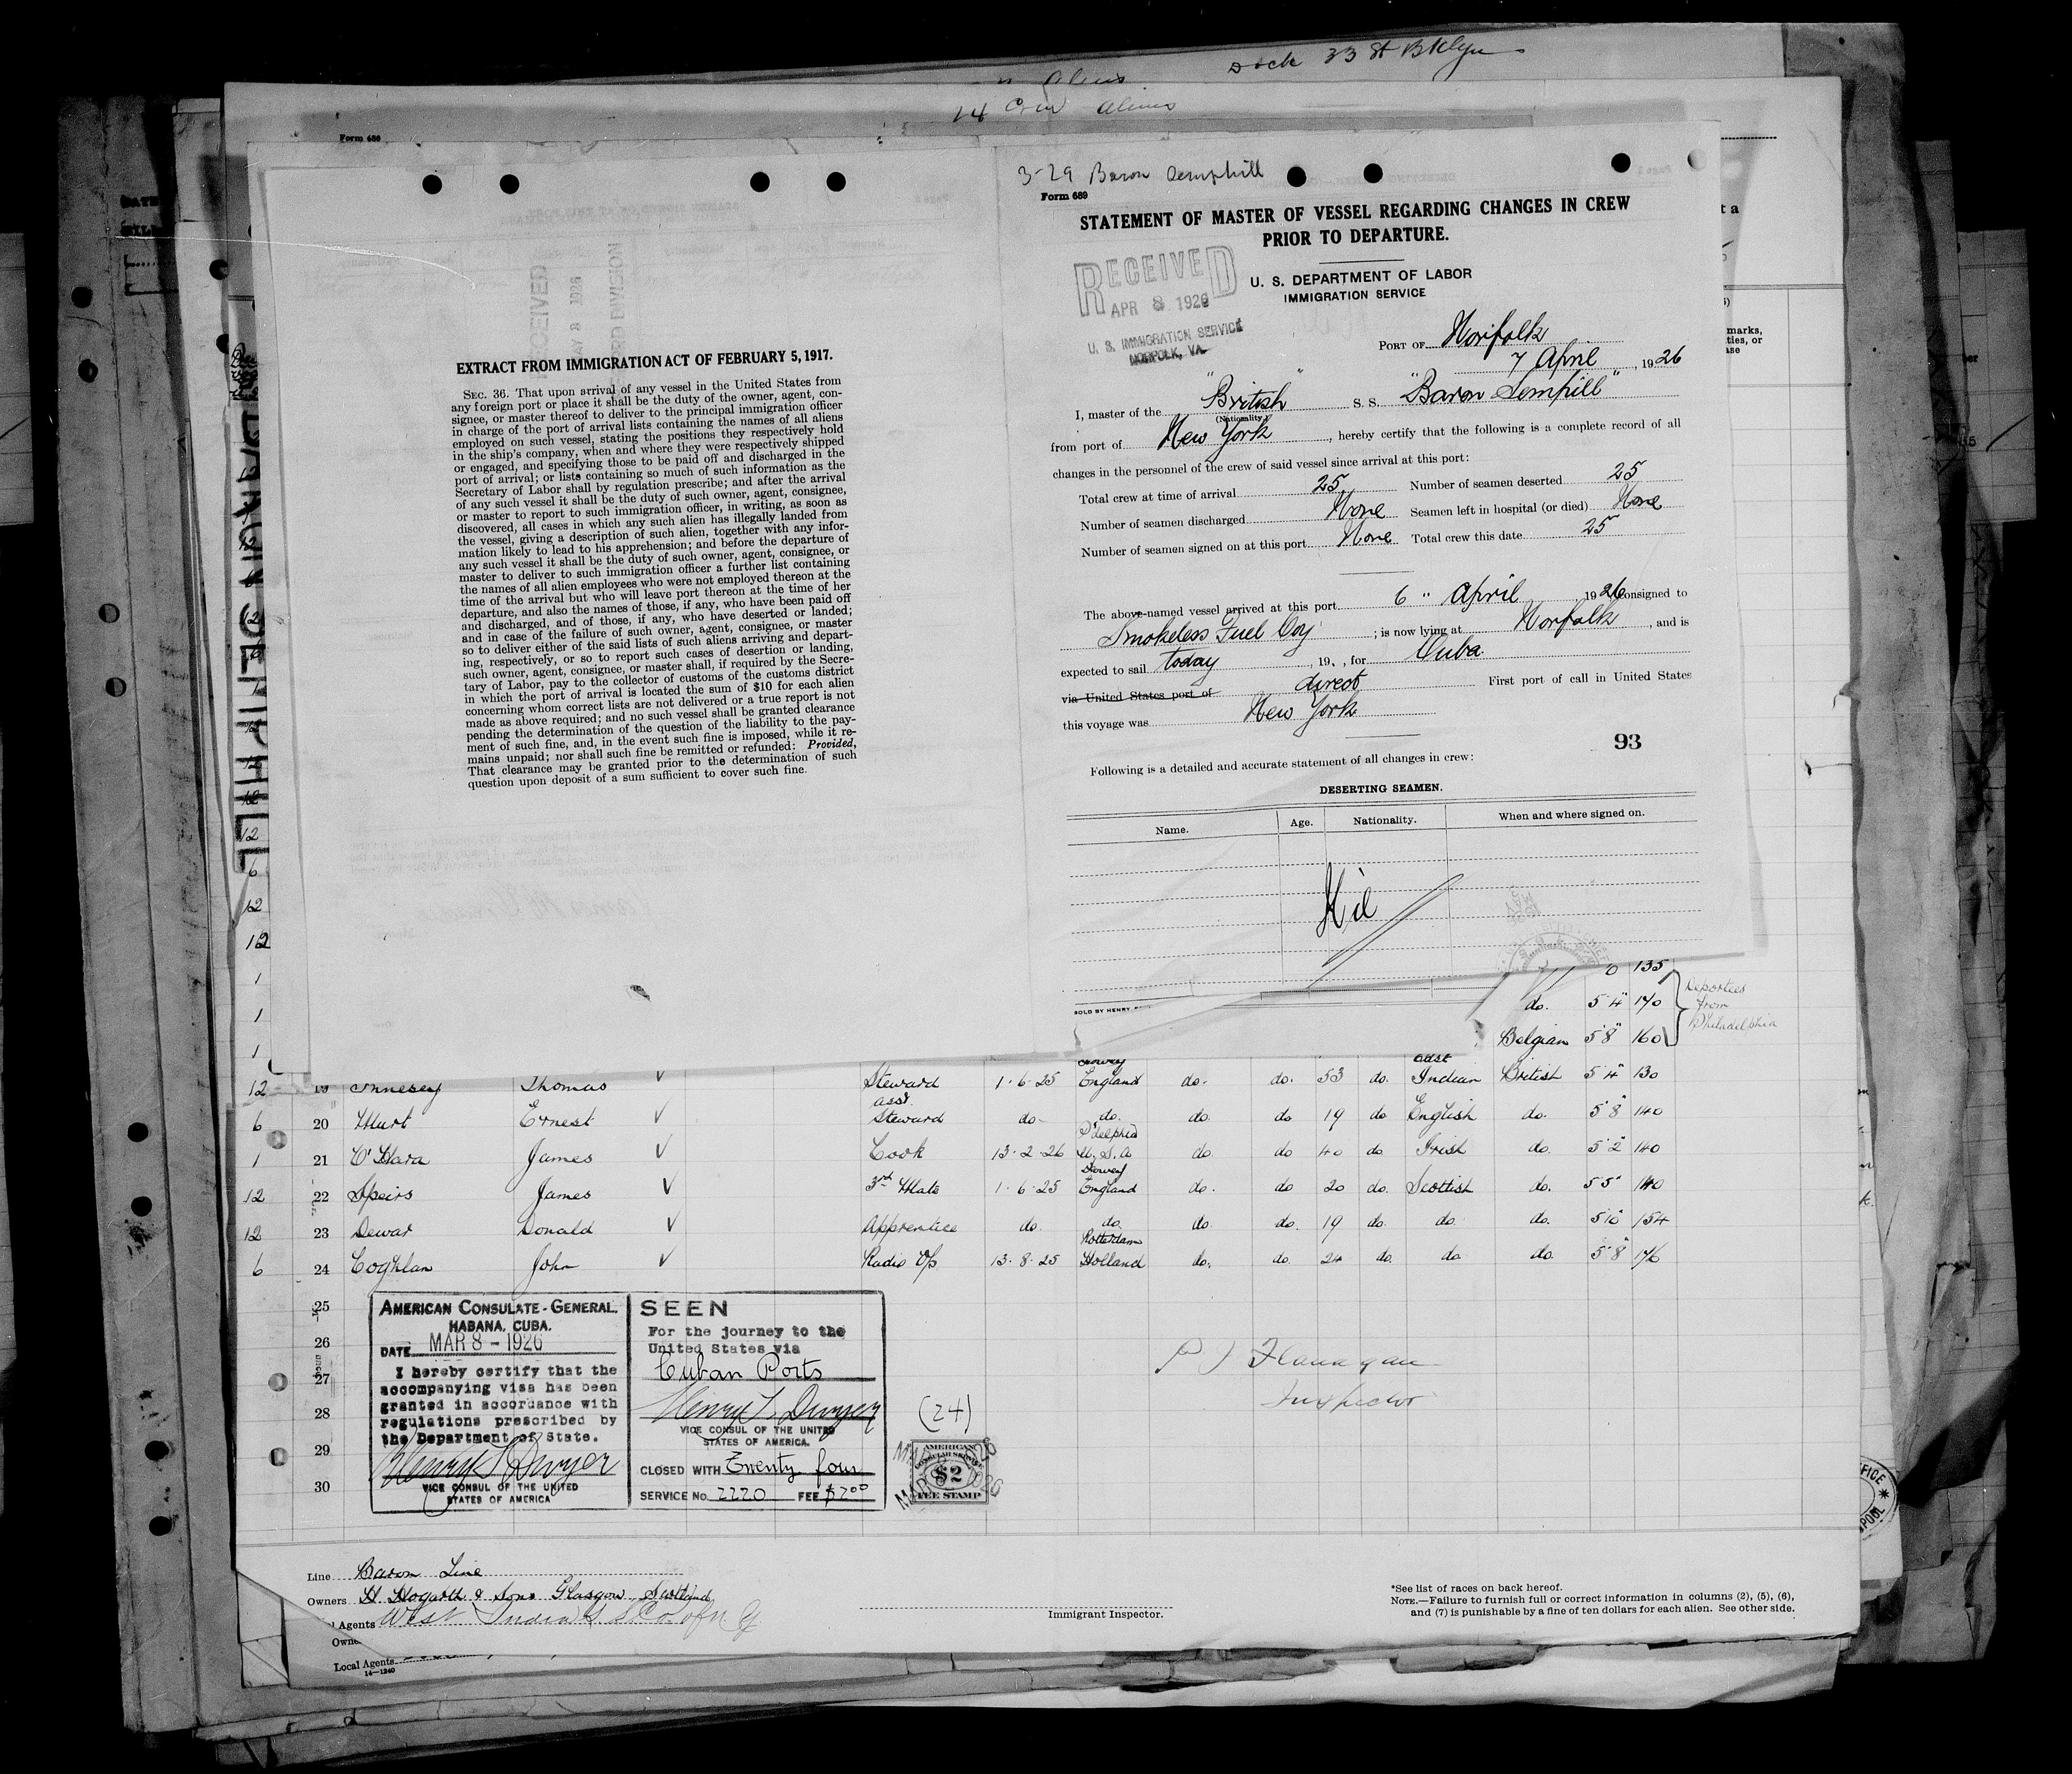 Dock 33 St Bklyn
14 Crew Aliens
Form 689
EXTRACT FROM IMMIGRATION ACT OF FEBRUARY 5, 1917.
SEC. 36. That upon arrival of any vessel in the United States from
any foreign port or place it shall be the duty of the owner, agent, con-
signee, or master thereof to deliver to the principal immigration officer
in charge of the port of arrival lists containing the names of all aliens
employed on such vessel, stating the positions they respectively hold
in the ship's company, when and where they were respectively shipped
or engaged, and specifying those to be paid off and discharged in the
port of arrival; or lists containing so much of such information as the
Secretary of Labor shall by regulation prescribe; and after the arrival
of any such vessel it shall be the duty of such owner, agent, consignee,
or master to report to such immigration officer, in writing, as soon as
discovered, all cases in which any such alien has illegally landed from
the vessel, giving a description of such alien, together with any infor-
mation likely to lead to his apprehension; and before the departure of
any such vessel it shall be the duty of such owner, agent, consignee, or
master to deliver to such immigration officer a further list containing
the names of all alien employees who were not employed thereon at the
time of the arrival but who will leave port thereon at the time of her
departure, and also the names of those, if any, who have been paid off
and discharged, and of those, if any, who have deserted or landed;
and in case of the failure of such owner, agent, consignee, or master
so to deliver either of the said lists of such aliens arriving and depart-
ing, respectively, or so to report such cases of desertion or landing,
such owner, agent, consignee, or master shall, if required by the Secre-
tary of Labor, pay to the collector of customs of the customs district
in which the port of arrival is located the sum of $10 for each alien
concerning whom correct lists are not delivered or a true report is not
made as above required; and no such vessel shall be granted clearance
pending the determination of the question of the liability to the pay-
ment of such fine, and, in the event such fine is imposed, while it re-
mains unpaid; nor shall such fine be remitted or refunded: Provided,
That clearance may be granted prior to the determination of such
question upon deposit of a sum sufficient to cover such fine.
3-29 Baron Semphill
Form 689
STATEMENT OF MASTER OF VESSEL REGARDING CHANGES IN CREW
PRIOR TO DEPARTURE.
RECEIVED
APR 8 1926
U. S. IMMIGRATION SERVICE
NORFOLK, VA.
U. S. DEPARTMENT OF LABOR
IMMIGRATION SERVICE
PORT OF Norfolk
7 April, 1926
I, master of the "British" S. S. "Baron Sempill"
(Nationality.)
from port of New York, hereby certify that the following is a complete record of all
changes in the personnel of the crew of said vessel since arrival at this port:
Total crew at time of arrival 25 Number of seamen deserted 25
Number of seamen discharged None Seamen left in hospital (or died) None
Number of seamen signed on at this port None Total crew this date 25
The above-named vessel arrived at this port 6 " April 1926 consigned to
Smokeless Fuel Coy; is now lying at Norfolk, and is
expected to sail today, 19 , for Cuba.
via United States port of direct First port of call in United States
this voyage was New York
93
Following is a detailed and accurate statement of all changes in crew:
DESERTING SEAMEN.
Name. Age. Nationality. When and where signed on.
Nil
SOLD BY HENRY
0 135
do. 5'4" 170
Belgian 5'8" 160
Deportees
from
Philadelphia
12 19 Innesey Thomas Steward 1·6·25 England do. do. 53 do. East Indian British 5'4" 130
6 20 Hurt Ernest Asst. Steward do. do. do. do 19 do English do. 5'8" 140
1 21 O'Hara James Cook 13·2·26 P'delphia U.S.A do. do 40 do. Irish do. 5'2" 140
12 22 Speirs James 3rd Mate 1·6·25 England do. do 20 do. Scottish do. 5'5" 140
12 23 Dewar Donald Apprentice do. do. do. do. 19 do. do. do. 5'10" 154
6 24 Coghlan John Radio Op 13·8·25 Rotterdam Holland do. do. 24 do. do do. 5'8" 176
25
26
27
28
29
30
AMERICAN CONSULATE-GENERAL.
HABANA, CUBA.
DATE MAR 8 - 1926
I hereby certify that the
accompanying visa has been
granted in accordance with
regulations prescribed by
the Department of State.
Henry T. Dwyer
VICE CONSUL OF THE UNITED
STATES OF AMERICA
SEEN
For the journey to the
United States via
Cuban Ports
Henry T. Dwyer
VICE CONSUL OF THE UNITED
STATES OF AMERICA.
CLOSED WITH Twenty four
SERVICE No. 2220 FEE $2.00
(24)
AMERICAN
CONSULAR SERVICE
$2
FEE STAMP
P J Flanagan
Inspector
Line Baron Line
Owners H. Hogarth & Sons Glasgow, Scotland
Agents West India S S Co of N Y
Local Agents
14-1240
Immigrant Inspector.
*See list of races on back hereof.
NOTE.—Failure to furnish full or correct information in columns (2), (5), (6),
and (7) is punishable by a fine of ten dollars for each alien. See other side.